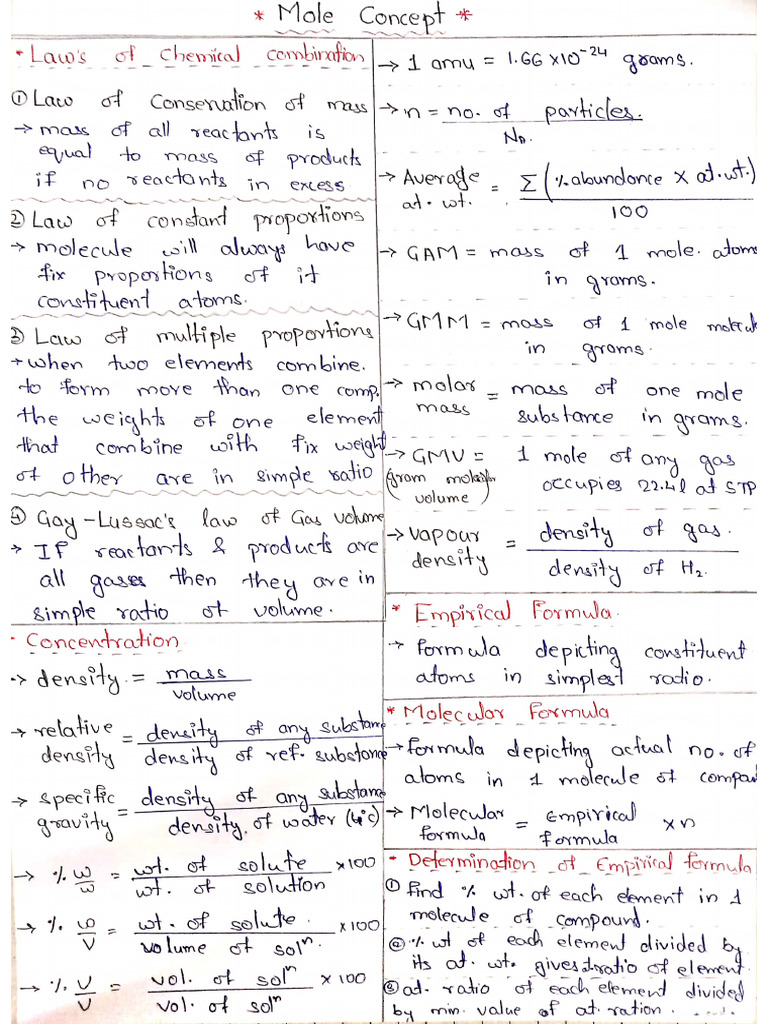 * Mole Concept *
* Law's of Chemical combination
① Law of Conservation of mass
→ mass of all reactants is
equal to mass of products
if no reactants in excess
② Law of constant proportions
→ molecule will always have
fix proportions of it
constituent atoms.
③ Law of multiple proportions
→ when two elements combine.
to form more than one comp.
the weights of one element
that combine with fix weight
of other are in simple ratio
④ Gay-Lussac's law of Gas volume
→ If reactants & products are
all gases then they are in
simple ratio of volume.
· Concentration
→ density = mass / volume
→ relative density = density of any substance / density of ref. substance
→ specific gravity = density of any substance / density of water (4°c)
→ % w/w = wt. of solute / wt. of solution ×100
→ % w/v = wt. of solute. / volume of solⁿ. ×100
→ % v/v = vol. of solⁿ / vol. of solⁿ ×100
→ 1 amu = 1.66 ×10⁻²⁴ grams.
→ n = no. of particles. / Nₐ.
→ Average at. wt. = Σ (% abundance × at. wt.) / 100
→ GAM = mass of 1 mole. atoms
in grams.
→ GMM = mass of 1 mole
in grams.
→ molar mass = mass of one mole
substance in grams.
→ GMV = 1 mole of any gas
(gram molar volume) occupies 22.4l at STP
→ vapour density = density of gas. / density of H₂.
* Empirical Formula.
→ formula depicting constituent
atoms in simplest radio.
* Molecular Formula
→ formula depicting actual no. of
atoms in 1 molecule of
→ Molecular formula = Empirical formula ×n
· Determination of Empirical formula
① Find % wt. of each element in 1
molecule of compound.
② % wt of each element divided by
its at. wt. gives ratio of element.
③ at. ratio of each element divided
by min. value of at. ration.